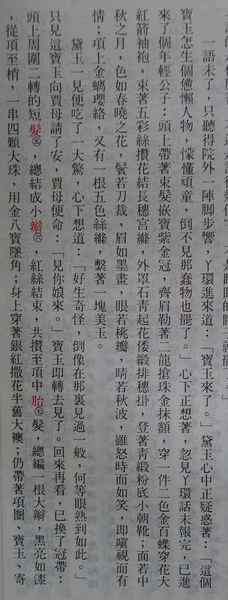 一語未了，只聽得院外一陣腳步響，丫環進來道：「寶玉來了。」黛玉心中正疑惑著：「這個
寶玉怎生個憊懶人物，懵懂頑童，倒不見那蠢物也罷了。」心下正想著，忽見丫環話未報完，已進
來了個年輕公子：頭上帶著束髮嵌寶紫金冠，齊眉勒著二龍搶珠金抹額，穿一件二色金百蝶穿花大
紅箭袖袍，束著五彩絲攢花結長穗宮縧，外罩石青起花倭緞排穗掛，登著青緞粉底小朝靴；面若中
秋之月，色如春曉之花，鬢若刀裁，眉如墨畫，眼若桃瓣，睛若秋波，雖怒時而如笑，即瞋視而有
情；項上金螭瓔珞，又有一根五色絲縧，繫著一塊美玉。
黛玉一見便吃了一大驚，心下想道：「好生奇怪，倒像在那裏見過一般，何等眼熟如此。」
只見這寶玉向賈母請了安，賈母便命：「見你娘來。」寶玉即轉去見了。回來再看，已換了冠帶：
頭上周圍一轉的短髮，總結成小辮，紅絲結束，共攢至頂中胎髮，總編一根大辮，黑亮如漆
，從頂至梢，一串四顆大珠，用金八寶墜角；身上穿著銀紅撒花半舊大襖；仍帶著項圈、寶玉、寄